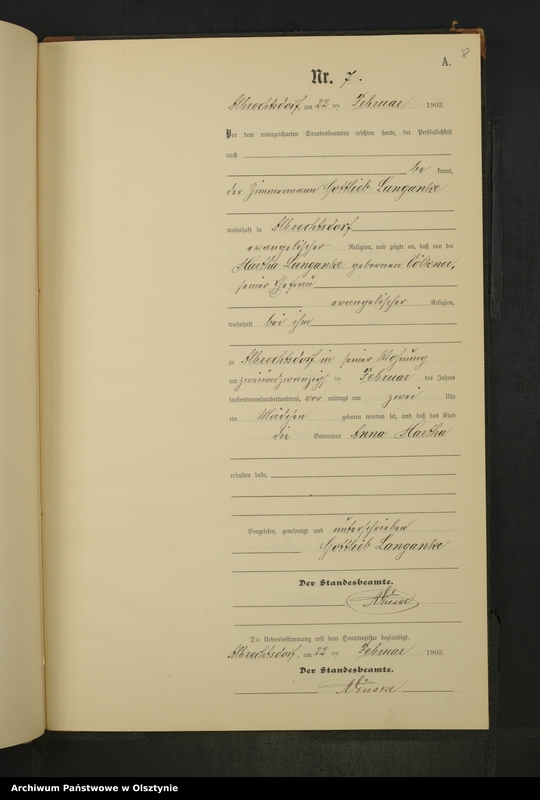 8
A.
Nr. 7.
Albrechtsdorf, am 22 ten Februar 1903.
Vor dem unterzeichneten Standesbeamten erschien heute, der Persönlichkeit
nach
be kannt,
der Zimmermann Gottlieb Langanke
wohnhaft in Albrechtsdorf
evangelischer Religion, und zeigte an, daß von der
Martha Langanke gebornen Völkner,
seiner Ehefrau
evangelischer Religion,
wohnhaft bei ihm
zu Albrechtsdorf in seiner Wohnung
am zweiundzwanzig ten Februar des Jahres
tausendneunhundertunddrei, vor mittags um zwei Uhr
ein Mädchen geboren worden sei, und daß das Kind
die Vornamen Anna Martha
erhalten habe.
Vorgelesen, genehmigt und unterschrieben
Gottlieb Langanke
Der Standesbeamte.
Die Uebereinstimmung mit dem Hauptregister beglaubigt.
Albrechtsdorf, am 22 ten Februar 1903.
Der Standesbeamte.
Archiwum Państwowe w Olsztynie